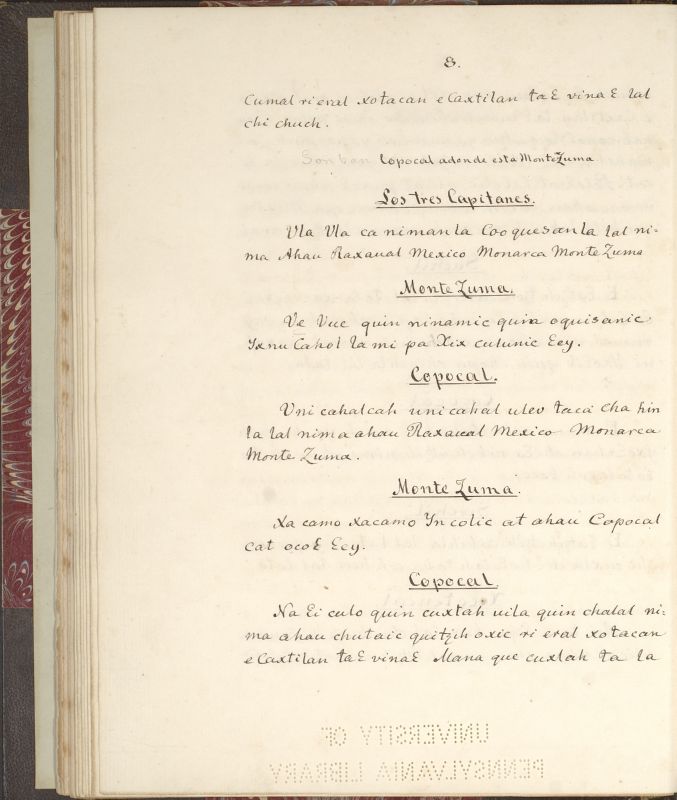 8.
Cumal ri eral xotacan e Caxtilan taƐ vinaƐ lal
chi chuch.
Son ban Copocal adonde esta MonteZuma
Los tres Capitanes.
Vla Vla ca nimanla Cooquesanla lal ni-
ma Ahau Raxaual Mexico Monarca MonteZuma
MonteZuma.
Ve Vue quin ninamic quira oquisanic
Yxnu Cahol la mi pa Xix culunic Eey.
Copocal.
Vni cahalcah uni cahal uleu taca Cha hin
la lal nima ahau Raxaual Mexico Monarca
Monte Zuma.
Monte Zuma.
Xa camo xacamo Yn colic at ahau Copocal
cat ocoƐ Eey.
Copocal.
Na Ei culo quin cuxtah uila quin chalal ni-
ma ahau chutaic quitjih oxic ri eral xotacan
e Caxtilan taƐ vinaƐ Mana que cuxlah ta la
UNIVERSITY OF
PENNSYLVANIA LIBRARY